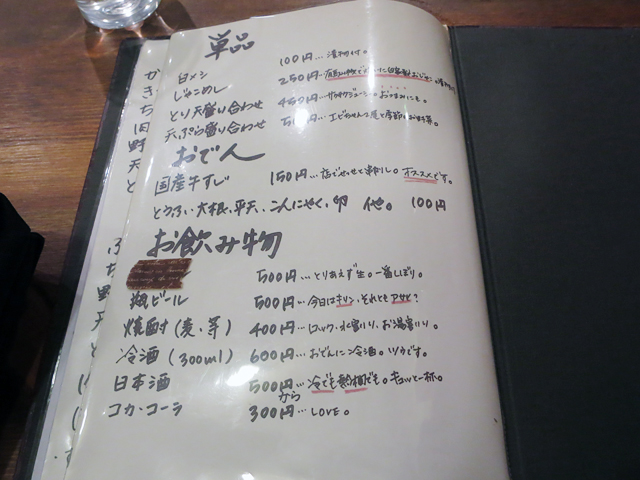 単品
白メシ 100円…漬物付。
じゃこめし 250円…
とり天盛り合わせ 450円…サクサクジューシー。おつまみにも。
天ぷら盛り合わせ
おでん
国産牛すじ 150円…店でせっせと串刺し。オススメです。
とうふ、大根、平天、こんにゃく、卵 他。 100円
お飲み物
500円…とりあえず生。一番しぼり。
瓶ビール 500円…今日はキリン、それともアサヒ?
焼酎(麦・芋) 400円…ロック、水割り、お湯割り。
冷酒(300ml) 600円…おでんに冷酒。ツウです。
日本酒 500円から…冷でも熱燗でも。キュッと一杯。
コカ・コーラ 300円…LOVE。